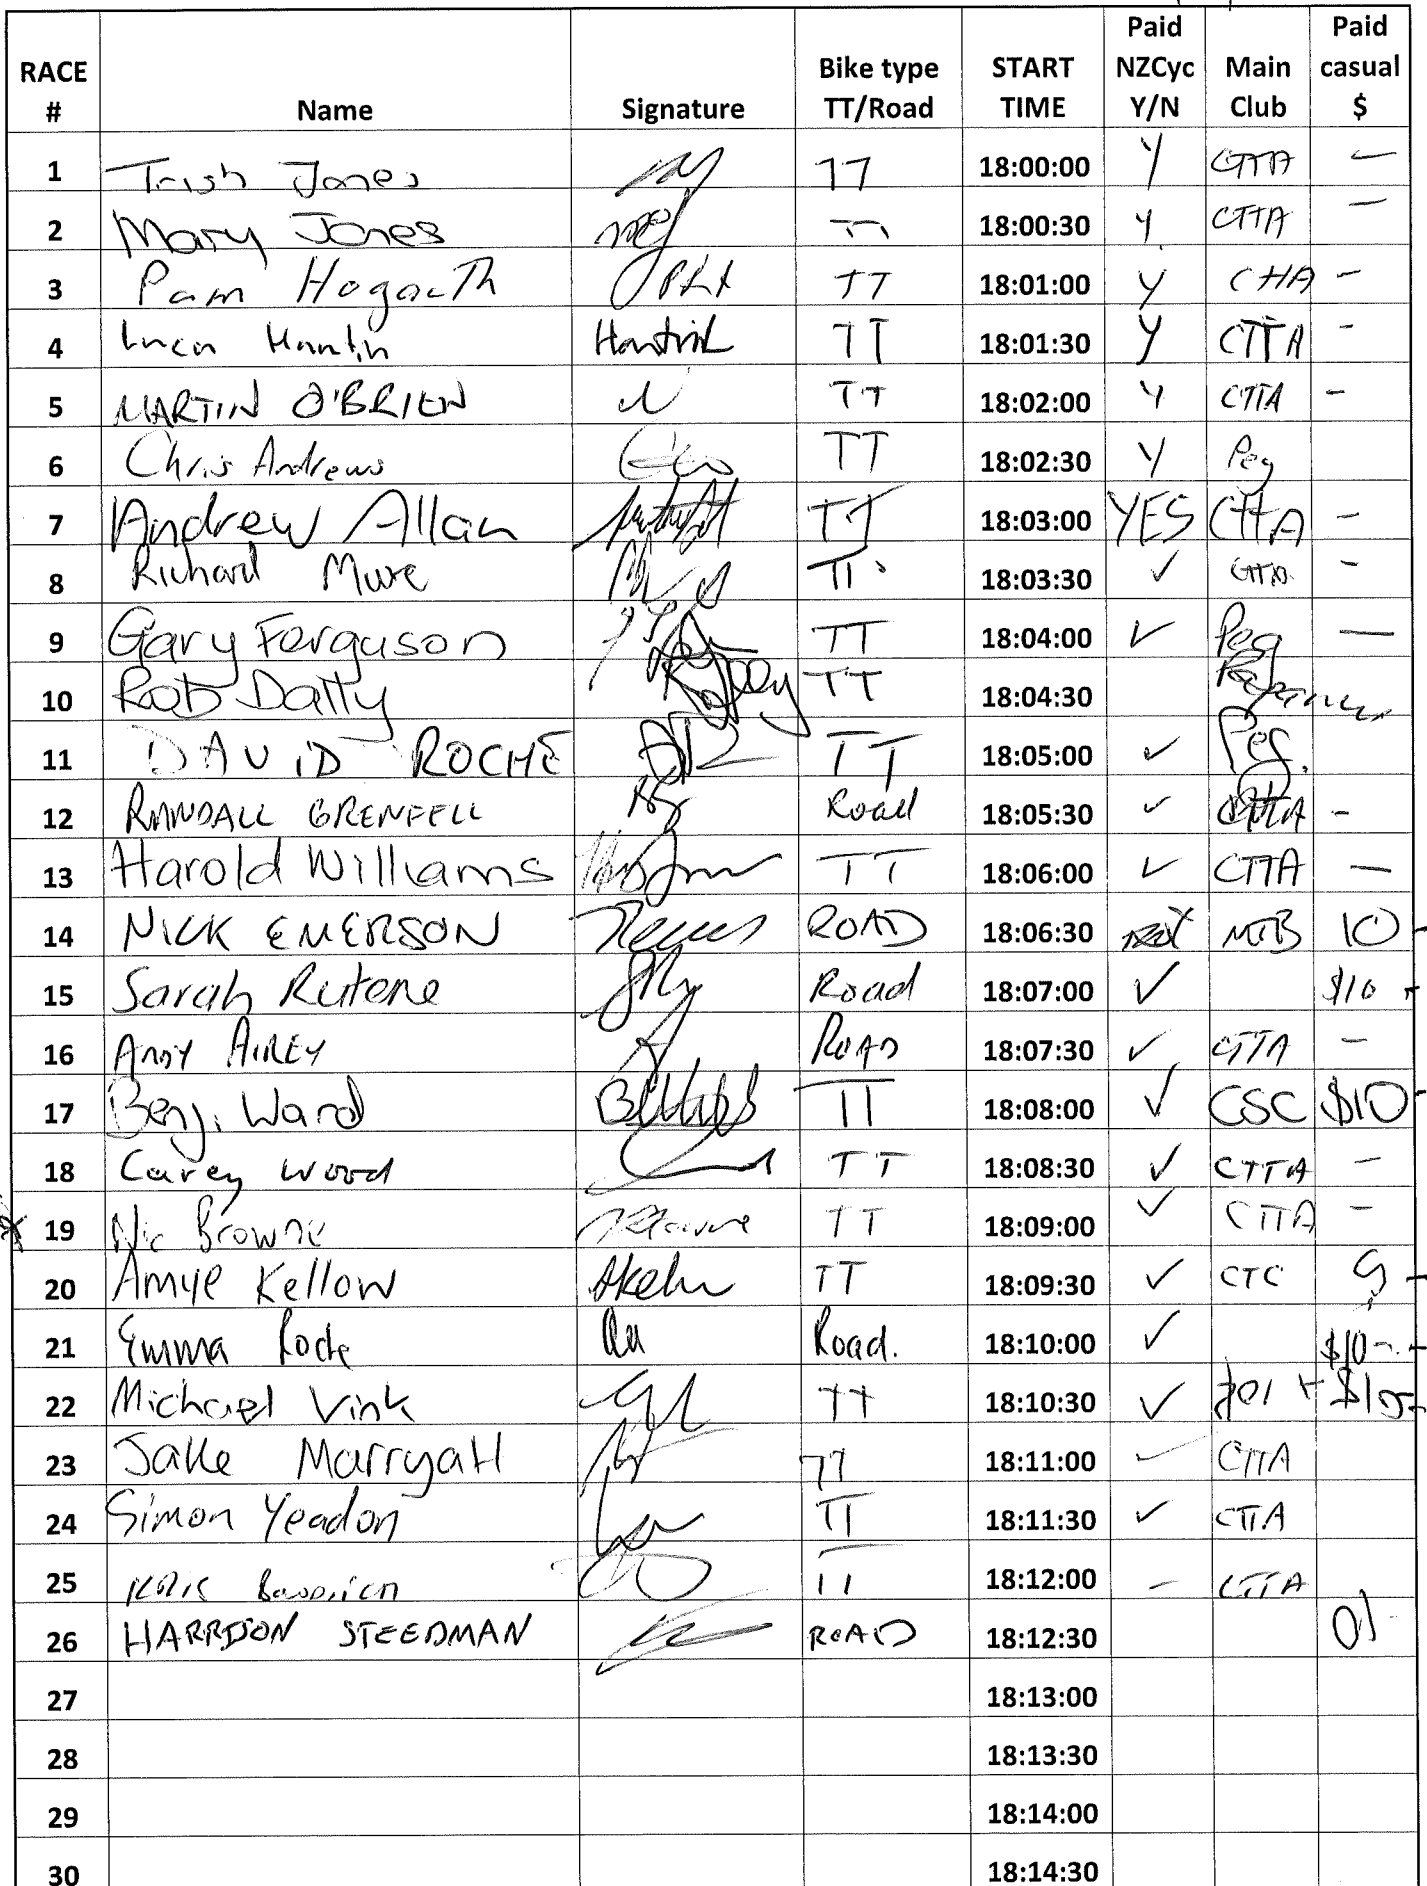 RACE # Name Signature Bike type TT/Road START TIME Paid NZCyc Y/N Main Club Paid casual $
1 Trish Jones TT 18:00:00 Y CTTA —
2 Mary Jones TT 18:00:30 Y CTTA —
3 Pam Hogarth TT 18:01:00 Y CTTA -
4 TT 18:01:30 Y CTTA -
5 MARTIN O'BRIEN TT 18:02:00 Y CTTA -
6 Chris Andrews TT 18:02:30 Y Peg
7 Andrew Allan TT 18:03:00 YES CTTA -
8 Richard Mure TT 18:03:30 ✓ CTTA -
9 Gary Ferguson TT 18:04:00 ✓ Peg —
10 Rob Dally TT 18:04:30
11 DAVID ROCHE TT 18:05:00 ✓ Peg.
12 RANDALL GRENFELL Road 18:05:30 ✓ CTTA -
13 Harold Williams TT 18:06:00 ✓ CTTA —
14 NICK EMERSON ROAD 18:06:30 MTB 10
15 Sarah Rutene Road 18:07:00 ✓ $10
16 ANDY AIREY ROAD 18:07:30 ✓ CTTA -
17 Benji Ward TT 18:08:00 ✓ CSC $10
18 Carey Wood TT 18:08:30 ✓ CTTA -
19 Nic Browne TT 18:09:00 ✓ CTTA -
20 Amye Kellow TT 18:09:30 ✓ CTC
21 Emma Road. 18:10:00 ✓ $10-
22 Michael Vink TT 18:10:30 ✓
23 Jake Marryatt TT 18:11:00 ✓ CTTA
24 Simon Yeadon TT 18:11:30 ✓ CTTA
25 TT 18:12:00 - CTTA
26 HARRISON STEEDMAN ROAD 18:12:30
27 18:13:00
28 18:13:30
29 18:14:00
30 18:14:30